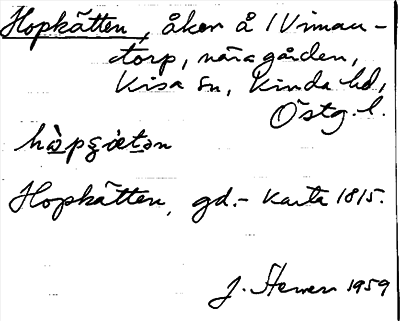 Hopkätten, åker å 1 Viman-
torp, nära gården,
Kisa sn, Kinda hd,
Östg. l.
Hopkätten, gd.- karta 1815.
J. 1959